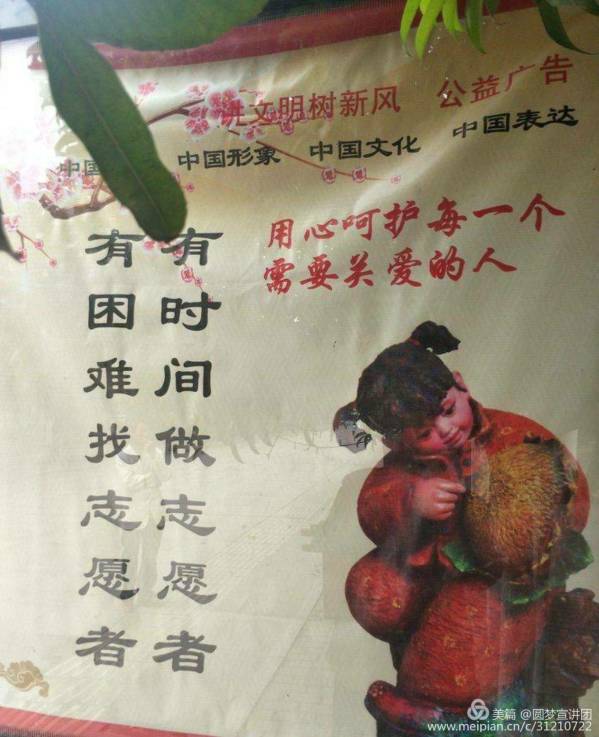 讲文明树新风 公益广告
中国 中国形象 中国文化 中国表达
用心呵护每一个
需要关爱的人
有时间做志愿者
有困难找志愿者
美篇 @圆梦宣讲团
www.meipian.cn/c/31210722